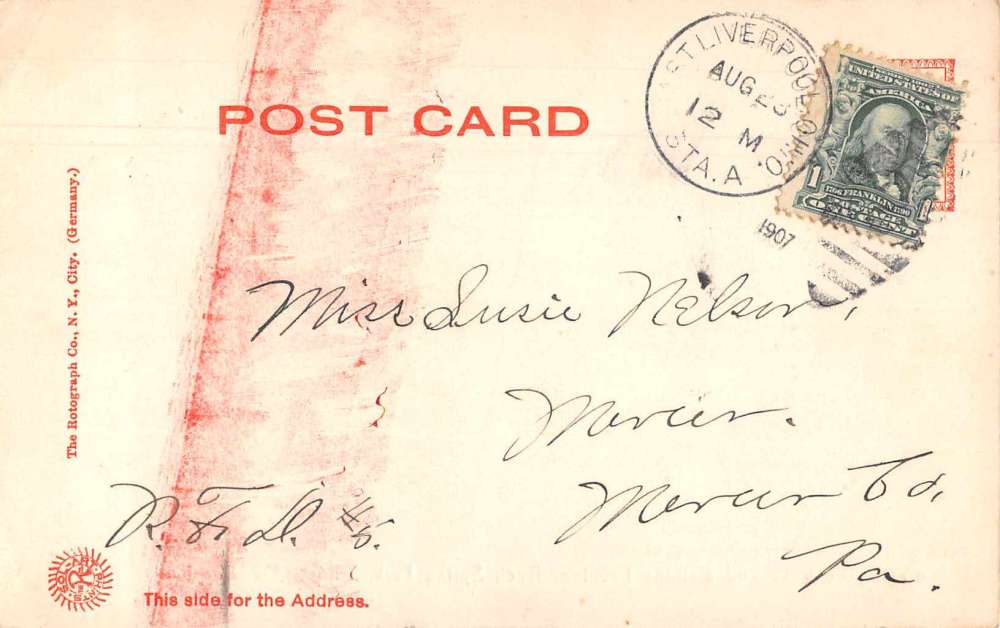 POST CARD
EAST LIVERPOOL, OHIO.
AUG 23
12 M
STA. A
1907
UNITED STATES OF
AMERICA
1 1
1706 FRANKLIN 1790
POSTAGE
ONE CENT
The Rotograph Co., N. Y., City. (Germany.)
Miss Susie Nelson,
Mercer.
Mercer Co,
Pa.
R. F. D. # 5.
This side for the Address.